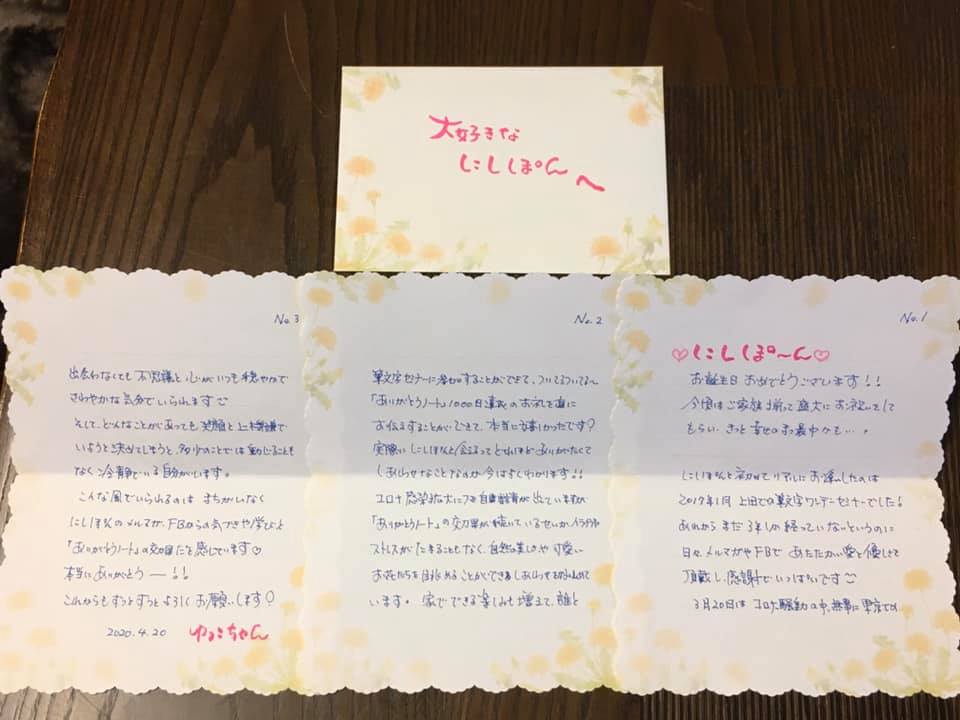 大好きな
にしぽんへ
No.1
♡にしぽ〜ん♡
お誕生日おめでとうございます!!
今頃はご家族揃って盛大にお祝いをして
もらい、きっと幸せのお最中ネ…。
にしぽんと初めてリアルにお逢いしたのは
2017年1月 上田での筆文字ワンデーセミナーでした!
あれからまだ3年しか経っていないというのに
日々メルマガやFBで あたたかい愛と優しさを
頂戴し、感謝でいっぱいです
3月20日は コロナ騒動の中、無事に東京での
No.2
筆文字セミナーに参加することができて、ツイてるツイてる〜
「ありがとうノート」1000日達成のお礼を直に
お伝えすることができて、本当に良かったです?
実際に にしぽんと会えるって どれほど ありがたくて
しあわせなことなのか 今はよくわかります!!
コロナ感染拡大にて自粛警報が出ていますが
「ありがとうノート」の効果が続いているせいか、イライラや
ストレスがたまることもなく、自然の美しさや可愛い
お花たちを眺めることができ しあわせを噛み締めて
います。 家でできる楽しみも増えて、誰と
No.3
出会わなくても 不思議と 心がいつも穏やかで
さわやかな気分でいられます
そして、どんなことがあっても 笑顔と上機嫌で
いようと決めてしまうと、多少のことでは動じることも
なく、冷静でいる自分がいます。
こんな風でいられるのは まちがいなく
にしぽんのメルマガ、FBからの気づきや学びと
「ありがとうノート」の効果だと感じています♡
本当にありがとう ー!!
これからもずっとずっとよろしくお願いします?
2020.4.20
ゆうこちゃん